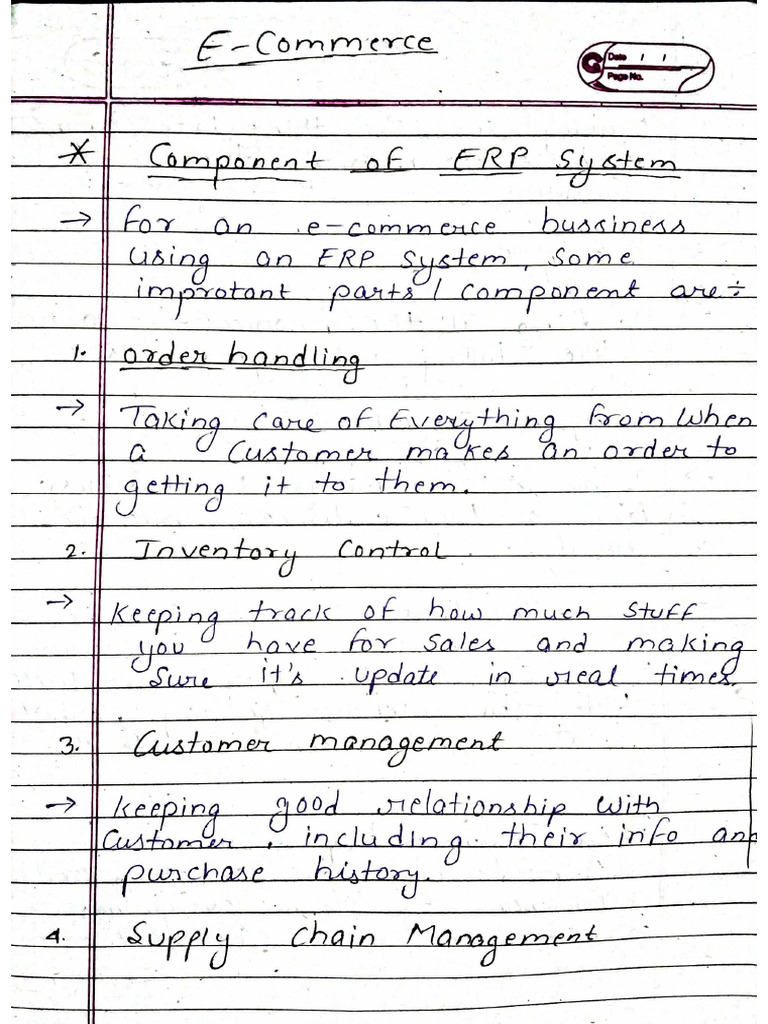 E-Commerce
Date / /
Page No.
* Component of ERP System
→ For an e-commerce bussiness
using an ERP System, Some
improtant parts / component are÷
1. order handling
→ Taking care of Everything from when
a Customer makes an order to
getting it to them.
2. Inventory Control
→ Keeping track of how much stuff
you have for sales and making
Sure it's update in real times.
3. Customer management
→ Keeping good relationship with
Customer, including their info and
purchase history.
4. Supply Chain Management